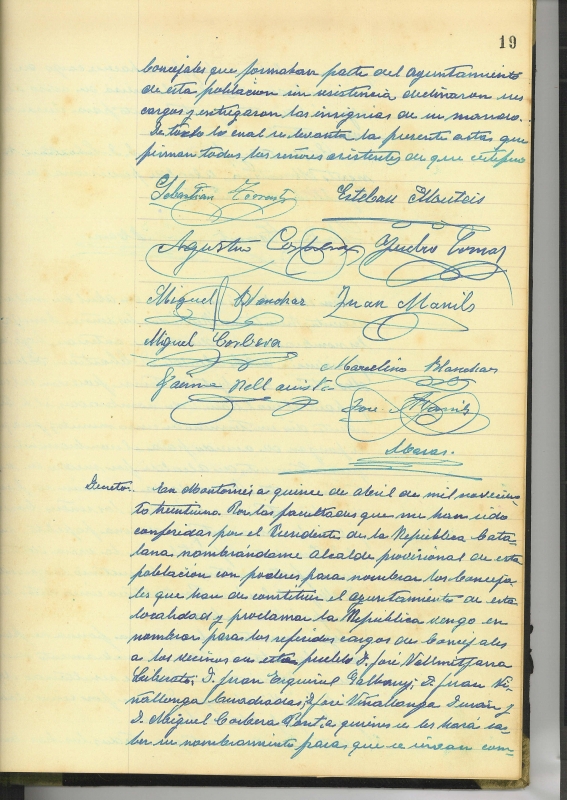 19
Concejales que formaban parte del Ayuntamiento
de esta poblacion sin resistencia declinaron sus
cargos y entregaron las insignias de su mando.
De todo lo cual se levanta la presente acta que
firman todos los señores asistentes de que certifico
Sebastian Torrents Esteban Monteis
Agustin Corbera Ysidro Tomas
Miguel Blanchar Juan Manils
Miguel Corbera
Marcelino Blanchar
Jaime Vellavista
José Manils
Decreto. En Montornés a quince de Abril de mil novecien-
to treintiuno. Por las facultades que me han sido
conferidas por el Presidente de la República Cata-
lana nombrándome Alcalde provisional de esta
población con poderes para nombrar los Conceja-
les que han de constituir el Ayuntamiento de esta
localidad y proclamar la República vengo en
nombrar para los referidos cargos de Concejales
a los vecinos de este pueblo D. José Vallmitjana
D. Juan Esquirol Galbany; D. Juan Vi-
ñallonga Cuadradas; D. José Viñallonga Durán y
D. Miguel Corbera Pont a quienes se les hará sa-
ber su nombramiento para que se